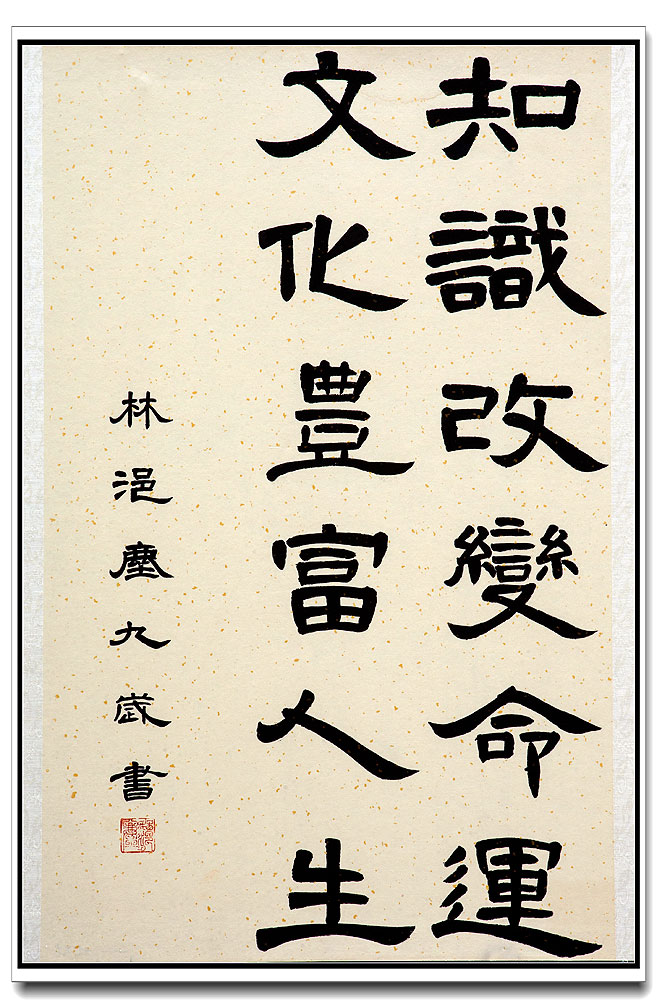 知識改變命運
文化豐富人生
林浥塵九歲書